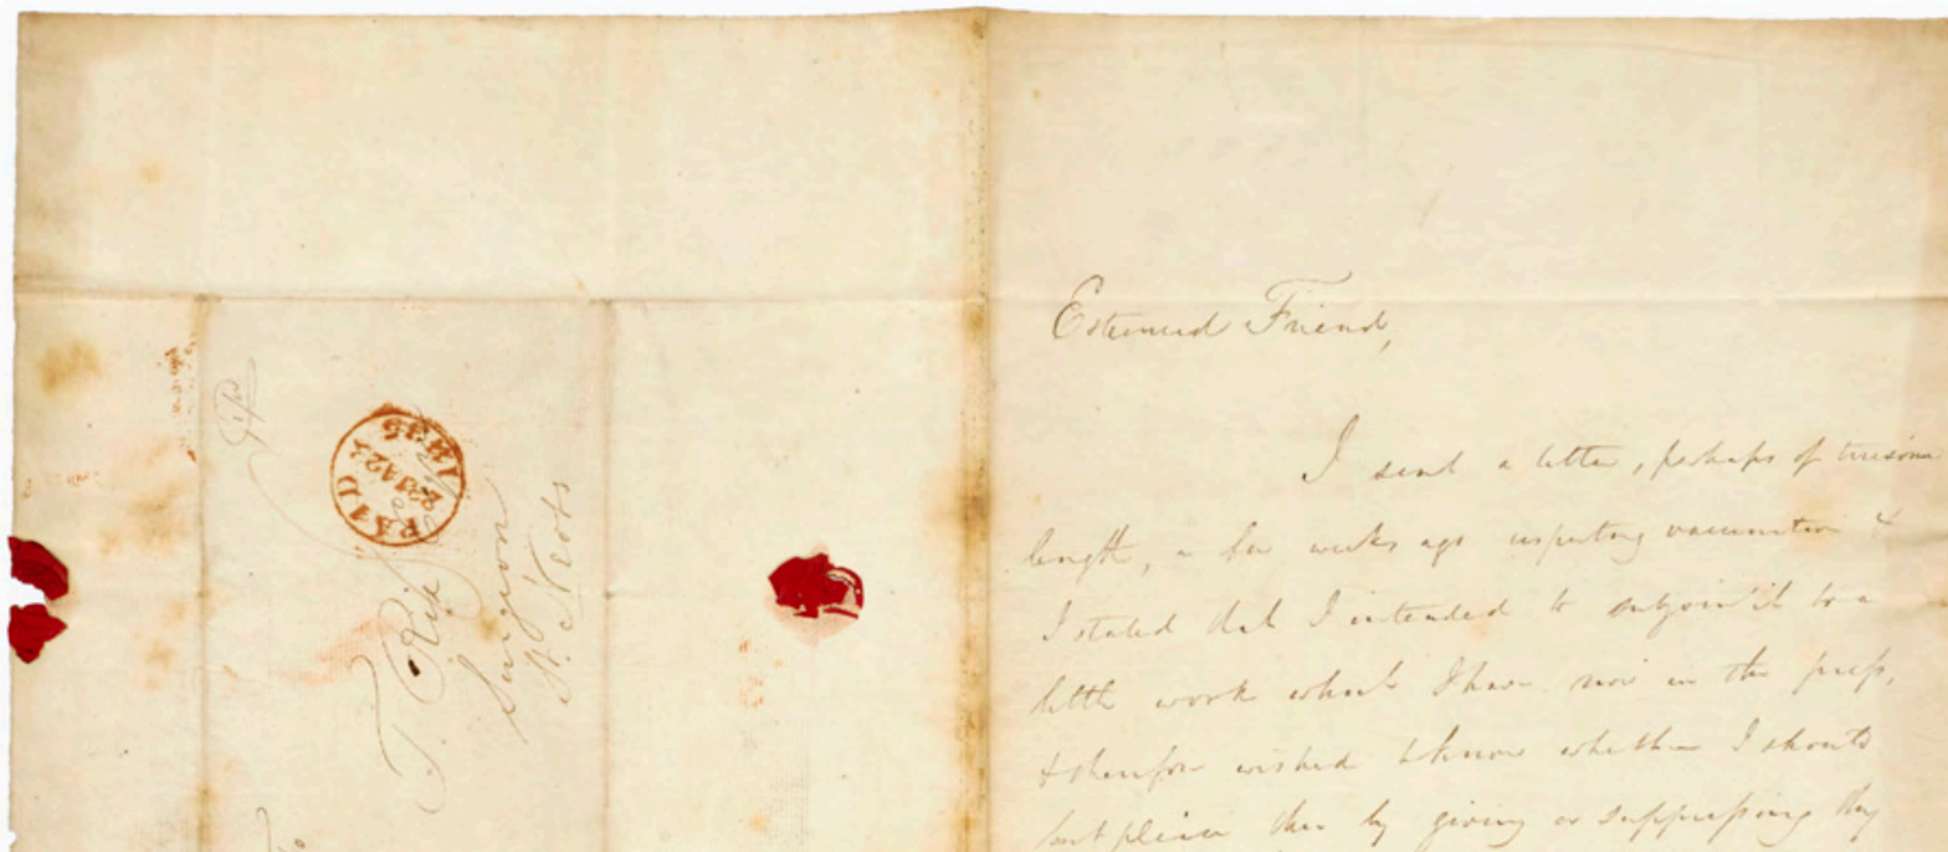 PAID
T. Rix
Surgeon
St. Neots
Esteemed Friend,
I sent a letter, perhaps of tiresome
length, a few weeks ago respecting vaccination &
I stated that I intended to subjoin it to a
little work which I have now in the press,
& therefore wished to know whether I should
best please thee by giving or suppressing thy